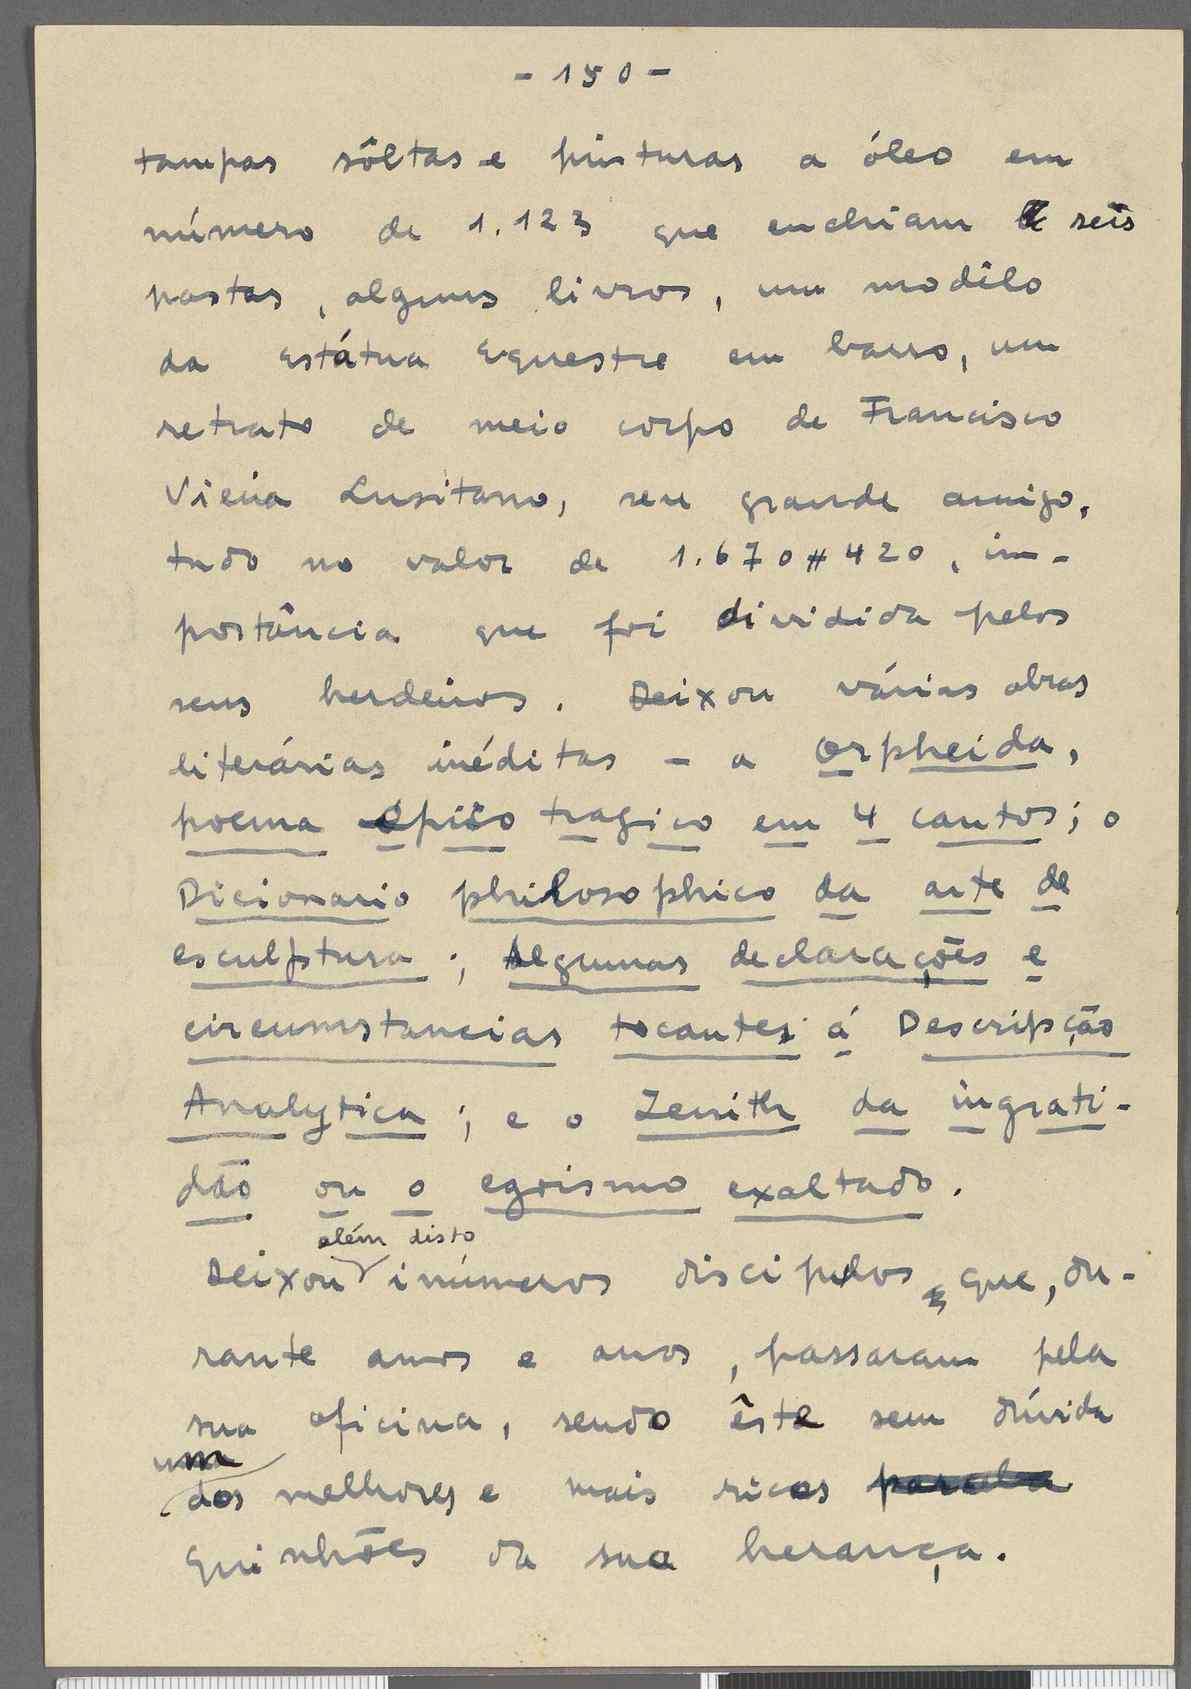 - 150 -
tampas sôltas e pinturas a óleo em
número de 1.123 que enchiam seis
pastas, alguns livros, um modêlo
da estátua equestre em barro, um
retrato de meio corpo de Francisco
Vieira Lusitano, seu grande amigo,
tudo no valor de 1.670#420, im-
portância que foi dividida pelos
seus herdeiros. Deixou várias obras
literárias inéditas - a Orpheida,
poema épico tragico em 4 cantos; o
Dicionario philosophico da arte de
esculptura; Algumas declarações e
circumstancias tocantes á Descripção
Analytica; e o Zenith da ingrati-
dão ou o egoismo exaltado.
além disto
Deixou inúmeros discipulos que, du-
rante anos e anos, passaram pela
sua oficina, sendo êste sem dúvida
um
dos melhores e mais ricos parcela
quinhões da sua herança.